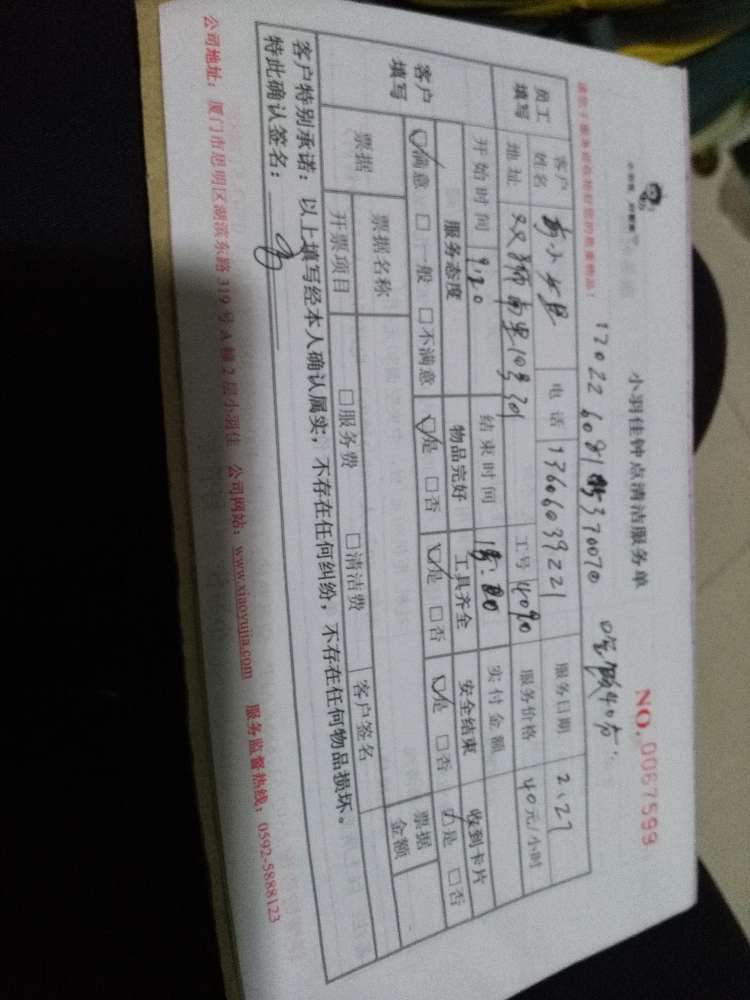 小羽佳钟点清洁服务单
NO. 0067599
请您于服务前收拾好您的贵重物品！
吃饭40分.
员工填写 客户姓名 小姐 电话 13606039221 服务日期 2.27
地址 双狮南里10号 工号 4090 服务价格 40元/小时
开始时间 9:20 结束时间 实付金额
客户填写 服务态度 物品完好 工具齐全 安全结束 收到卡片
☑满意 □一般 □不满意 ☑是 □否 ☑是 □否 ☑是 □否 ☑是 □否
票据 票据名称 票据金额
开票项目 □服务费 □清洁费 客户签名
客户特别承诺：以上填写经本人确认属实，不存在任何纠纷，不存在任何物品损坏。
特此确认签名：
公司地址：厦门市思明区湖滨东路319号A幢2层小羽佳 公司网站：www.xiaoyujia.com 服务监督热线：0592-5888123